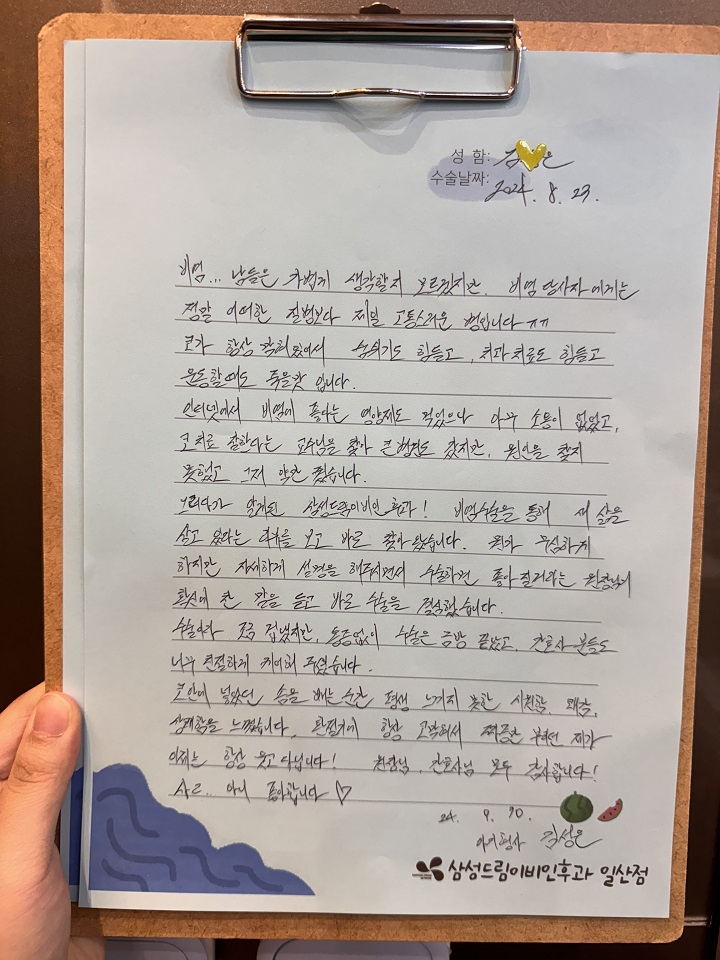 성 함: 김 은
수술날짜: 2024. 8. 23.
비염... 남들은 가볍게 생각할지 모르겠지만, 비염 당사자에게는
정말 어떠한 질병보다 제일 고통스러운 병입니다 ㅠㅠ
코가 항상 막혀있어서 숨쉬기도 힘들고, 치과치료도 힘들고
운동할때도 죽을맛 입니다.
인터넷에서 비염에 좋다는 영양제도 먹었으나 아무 소용이 없었고,
코치료 잘한다는 교수님을 찾아 큰병원도 갔지만, 원인을 찾지
못했고 그저 약만 줬습니다.
그러다가 알게된 삼성드림이비인후과! 비염수술을 통해 새 삶을
살고 있다는 후기를 보고 바로 찾아왔습니다. 뭔가 무심하게
하지만 자세하게 설명을 해주시면서 수술하면 좋아질거라는 원장님의
확신에 찬 말을 듣고 바로 수술을 결심했습니다.
수술이라 조금 겁났지만, 통증없이 수술은 금방 끝났고, 간호사 분들도
너무 친절하게 케어해 주셨습니다.
콧안에 넣었던 솜을 빼는 순간 평생 느끼지 못한 시원함, 쾌감,
상쾌함을 느꼈습니다. 환절기에 항상 코막혀서 짜증만 부렸던 제가
이제는 항상 웃고 다닙니다! 원장님, 간호사님 모두 감사합니다!
아니 좋아합니다 ♡
24. 9. 10.
김성은
삼성드림이비인후과 일산점